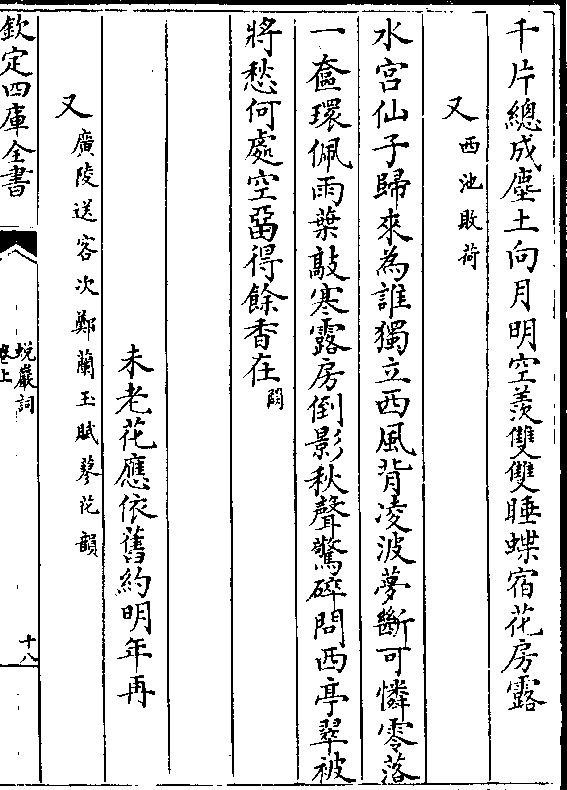 千片總成塵土向月明空羨雙雙睡蝶宿花房露
又西池敗荷
水宮仙子歸來為誰獨立西風背凌波夢斷可憐零落
一奩環佩雨葉敲寒露房倒影秋聲驚碎問西亭翠被
將愁何處空留得餘香在闕
未老花應依舊約明年再
又廣陵送客次鄭蘭玉賦蓼花韻
欽定四庫全書
蛻巖詞
卷上
十八